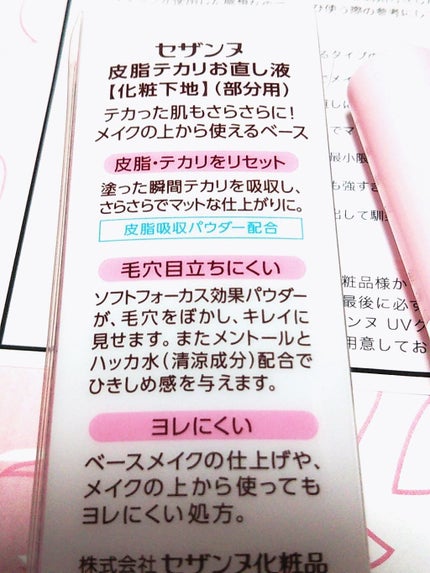 セザンヌ
皮脂テカリお直し液
【化粧下地】(部分用)
テカった肌もさらさらに!
メイクの上から使えるベース
皮脂・テカリをリセット
塗った瞬間テカリを吸収し、
さらさらでマットな仕上がりに。
皮脂吸収パウダー配合
毛穴目立ちにくい
ソフトフォーカス効果パウダー
が、毛穴をぼかし、キレイに
見せます。またメントールと
ハッカ水(清涼成分)配合で
ひきしめ感を与えます。
ヨレにくい
ベースメイクの仕上げや、
メイクの上から使っても
ヨレにくい処方。
株式会社 セザンヌ化粧品
粧品様か
最後に必ず
ンヌ UVク
用意してお